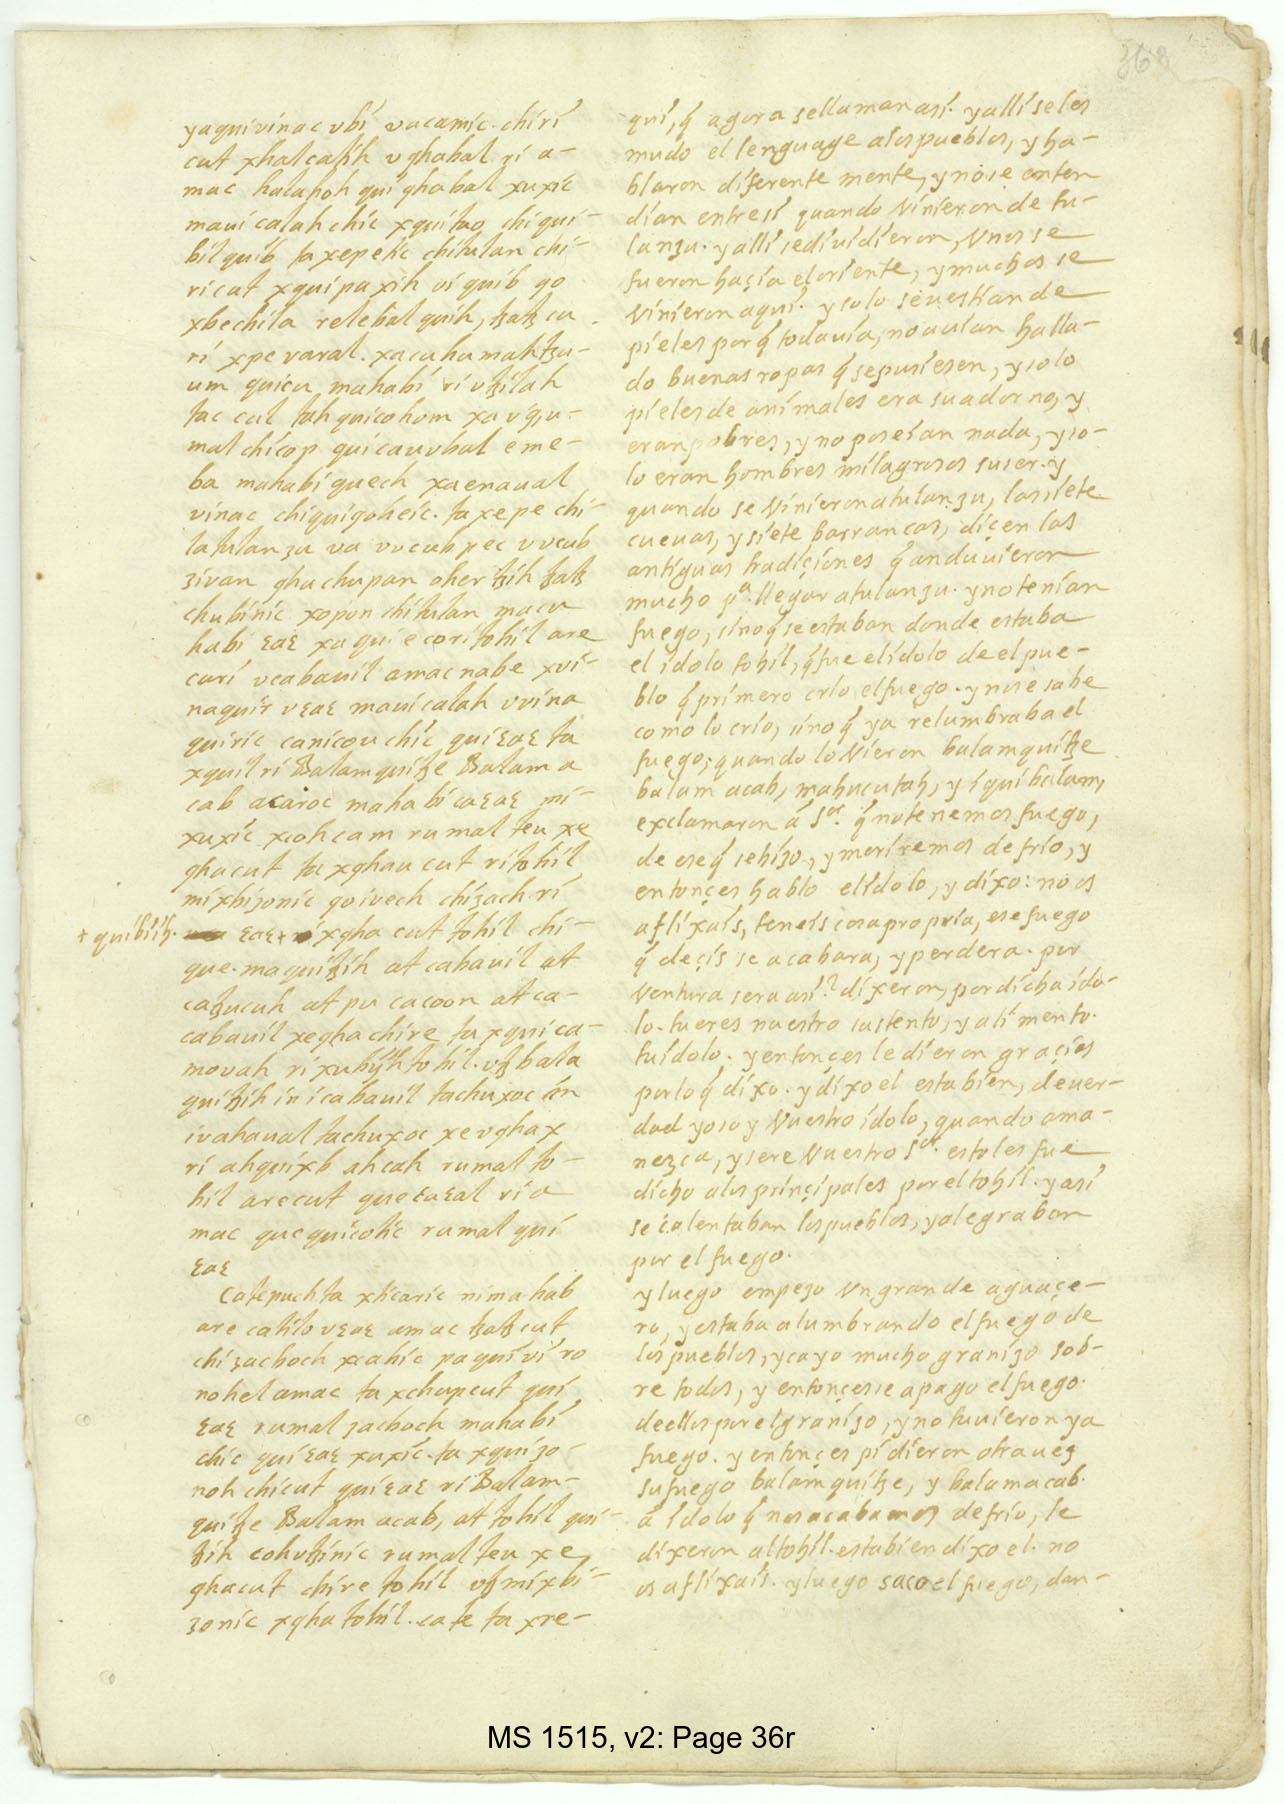 368
yaqui vinac ubi vacamic. chiri
cut xhalcatih u ghabal ri a-
mac halahoh qui ghabal xuxic
maui calah chic xquitao chiqui-
bil quib ta xepetic chitulan chi-
ri cut xquipaxih vi quib go
xbechila relebal quih, ꜩatꜩ cu
ri xpe varal. xacuhumahꜩu-
um quicu mahabi ri utꜩilah
tac cul tah quicohom xa u ꜩu-
mal chicop quicauubal e me-
ba mahabi quech xa e naual
vinac chiquigoheic. ta xepe chi-
la tulan zu va vucub pec vucub
zivan ghachupan oher ꜩih ꜩatꜩ
chubinic xopon chitulan macu
habi ɛaɛ xa qui e cori tohil are
curi ucabauil amac nabe xvi-
naquir uɛaɛ maui calah uvina
quiric canicou chic qui ɛaɛ ta
xquil ri Balam quiꜩe Balam a
cab acaroc mahabi caɛaɛ mi-
xuxic xcohcam rumal teu xe
ghacut ta xghau cut ri tohil
mixbizonic go ivech chizach ri
+ quibiih. ɛaɛ + xgha cut tohil chi-
que. maquiꜩih at cabauil at
catzucuh at pu cacoon at ca-
cabauil xegha chire ta xquica-
movah ri xubijh tohil. utꜩ bala
quiꜩih in icabauil tachuxoc in
ivahaual tachuxoc xe ughax
ri ahquixb ahcah rumal to-
hil arecut que ɛaɛal ri a
mac quequicotic rumal qui
ɛaɛ
Catepuch ta xticaric nima hab
are catilo uɛaɛ amac ꜩatꜩ cut
chi zacboch xcahic pa qui vi ro
nohel amac ta xchupcut qui
ɛaɛ rumal zacboch mahabi
chic qui ɛaɛ xuxic. ta xquizo-
noh chicut qui ɛaɛ ri Balam-
quiꜩe Balam acab, at tohil qui-
ꜩih cohutꜩinic rumal teu xe
ghacut chire tohil utꜩ mixbi-
zonic xgha tohil. cate ta xre-
qui, q̃ agora se llaman asi. y alli se les
mudo el lenguage a los pueblos, y ha-
blaron diferente mente, y no se enten
dian entre si quando Vinieron de tu-
lanzu. y alli se diuidieron, Vnos se
fueron haçia el oriente, y muchos se
Vinieron aqui. y solo se uestian de
pieles por q̃ todauia, no auian halla-
do buenas ropas q̃ se pusiesen, y solo
pieles de animales era su adorno, y
eran pobres, y no poseian nada, y so-
lo eran hombres milagrosos su ser. y
quando se Vinieron a tulanzu, las siete
cueuas, y siete barrancas, diçen las
antiguas tradiçiones q̃ anduuieron
mucho pa. llegar a tulanzu. y no tenian
fuego, sino q̃ se estaban donde estaba
el idolo tohil, q̃ fue el idolo de el pue-
blo q̃ primero crio el fuego. y no se sabe
como lo crio, sino q̃ ya relumbraba el
fuego, quando lo Vieron balamquiꜩe
balam acab, mahucutah, y iquibalam,
exclamaron á Sor. q̃ no tenemos fuego,
de ese q̃ se hizo, y moriremos de frio, y
entonçes hablo el idolo, y dixo: no os
aflixais, teneis cosa propria, ese fuego
q̃ deçis se acabara, y perdera. por
Ventura sera asi? dixeron, por dicha ido-
lo. tu eres nuestro sustento, y alimento.
tu idolo. y entonçes le dieron graçias
por lo q̃ dixo. y dixo el esta bien, de uer-
dad yo soy Vuestro idolo, quando ama-
nezca, y sere Vuestro Sor. esto les fue
dicho a los prinçipales por el tohil. y asi
se calentaban los pueblos, y alegraban
por el fuego.
y luego empezo Vn grande aguaçe-
ro, y estaba alumbrando el fuego de
los pueblos, y cayo mucho granizo sob-
re todos, y entonçes se apago el fuego.
de ellos por el granizo, y no tuuieron ya
fuego. y entonçes pidieron otra uez
su fuego balamquiꜩe, y balam acab.
á idolo q̃ nos acabamos de frio, le
dixeron al tohil. esta bien dixo el. no
os aflixais. y luego saco el fuego, dan-
MS 1515, v2: Page 36r